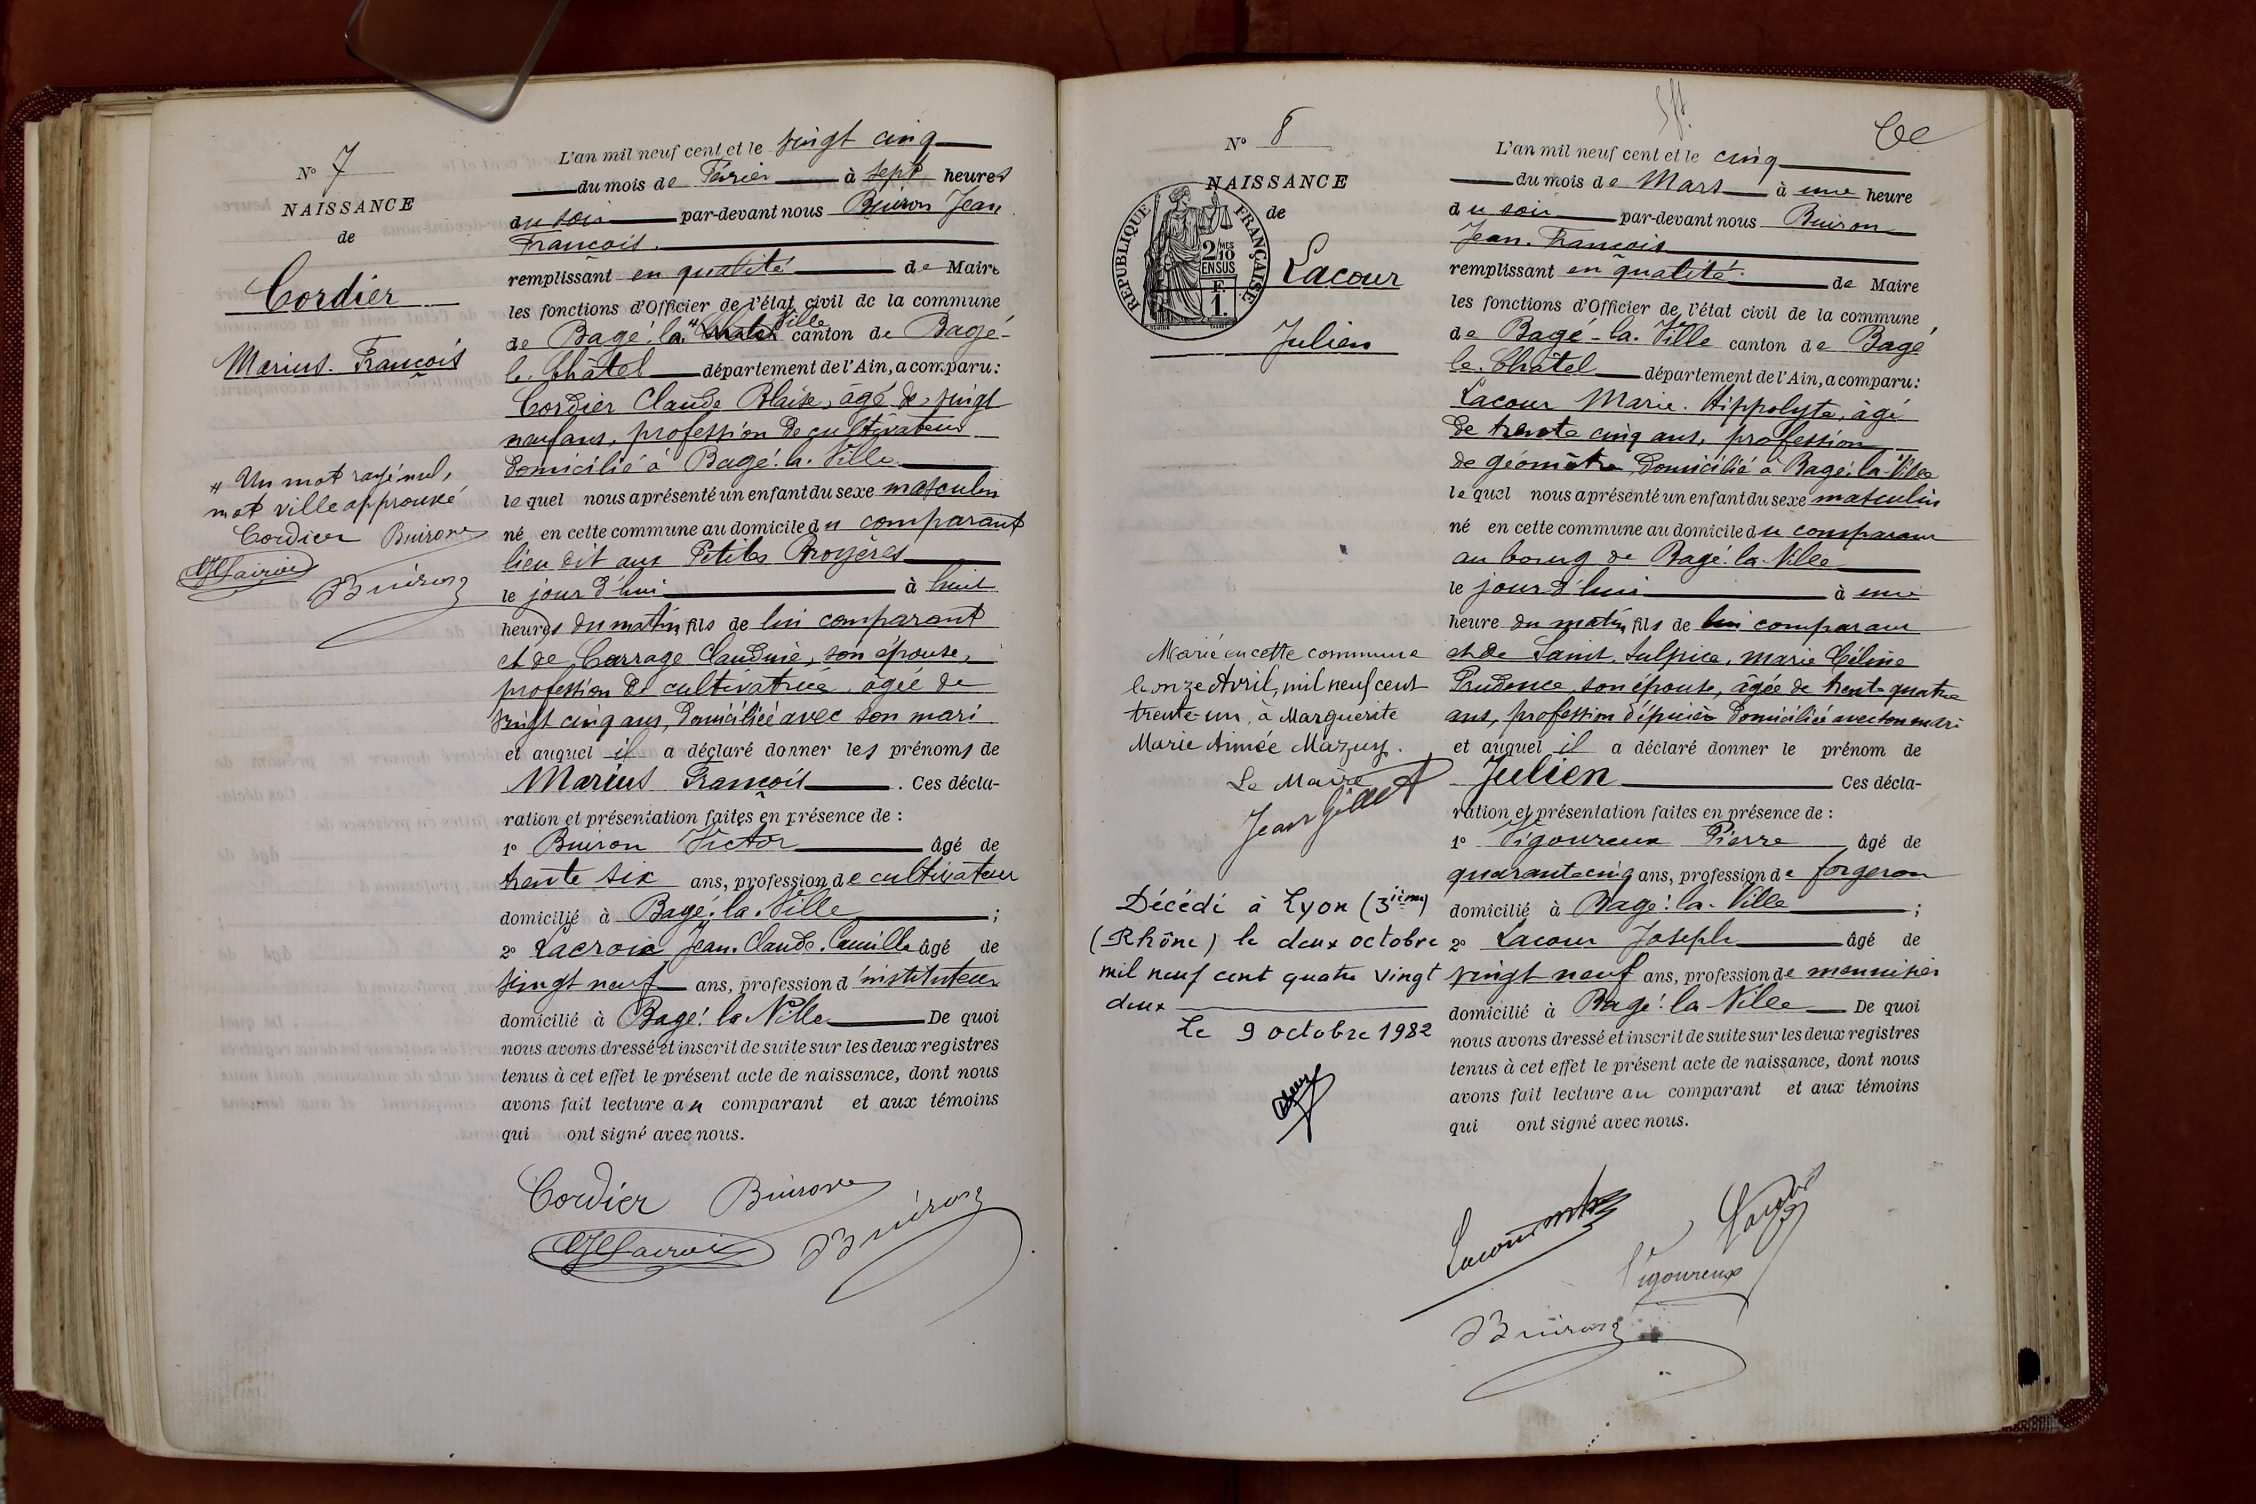 N° 7
NAISSANCE
de
Cordier
Marius. François
# Un mot rayé nul,
mot ville approuvé
Cordier Buiron
Buiron
L'an mil neuf cent et le vingt cinq
du mois de Février à sept heures
du soir par-devant nous Buiron Jean
François.
remplissant en qualité de Maire
les fonctions d'Officier de l'état civil de la commune
de Bagé-la # Ville canton de Bagé-
le-Châtel département de l'Ain, a comparu:
Cordier Claude Blaise, âgé de vingt
neuf ans, profession de cultivateur
domicilié à Bagé-la-Ville
lequel nous a présenté un enfant du sexe masculin
né en cette commune au domicile du comparant
lieu dit aux Petites Broyères
le jour d'hui à huit
heures du matin, fils de lui comparant
et de Carrage Claudine, son épouse,
profession de cultivatrice, âgée de
vingt cinq ans, domiciliée avec son mari
et auquel il a déclaré donner les prénoms de
Marius François. Ces décla-
ration et présentation faites en présence de :
1° Buiron Victor âgé de
trente six ans, profession de cultivateur
domicilié à Bagé-la-Ville ;
2° Lacroix Jean-Claude-Camille âgé de
vingt neuf ans, profession d'instituteur
domicilié à Bagé-la-Ville De quoi
nous avons dressé et inscrit de suite sur les deux registres
tenus à cet effet le présent acte de naissance, dont nous
avons fait lecture au comparant et aux témoins
qui ont signé avec nous.
Cordier Buiron
Lacroix Buiron
N° 8
NAISSANCE
de
RÉPUBLIQUE FRANÇAISE
2/10MES
EN SUS
F
1.
Lacour
Julien
Marié en cette commune
le onze Avril, mil neuf cent
trente-un, à Marguerite
Marie Aimée Mazuy.
Le Maire
Décédé à Lyon (3ième)
(Rhône) le deux octobre
mil neuf cent quatre vingt
deux
Le 9 octobre 1982
L'an mil neuf cent et le cinq
du mois de Mars à une heure
du soir par-devant nous Buiron
Jean-François
remplissant en qualité de Maire
les fonctions d'Officier de l'état civil de la commune
de Bagé-la-Ville canton de Bagé
le-Châtel département de l'Ain, a comparu:
Lacour Marie-Hippolyte, âgé
de trente cinq ans, profession
de géomètre, domicilié à Bagé-la-Ville
lequel nous a présenté un enfant du sexe masculin
né en cette commune au domicile du comparant
au bourg de Bagé-la-Ville
le jour d'hui à une
heure du matin, fils de lui comparant
et de Saint-Sulpice, Marie Céline
Prudence, son épouse, âgée de trente quatre
ans, profession d'épicière domiciliée avec son mari
et auquel il a déclaré donner le prénom de
Julien Ces décla-
ration et présentation faites en présence de :
1° Vigoureux Pierre âgé de
quarante cinq ans, profession de forgeron
domicilié à Bagé-la-Ville ;
2° Lacour Joseph âgé de
vingt neuf ans, profession de menuisier
domicilié à Bagé-la-Ville De quoi
nous avons dressé et inscrit de suite sur les deux registres
tenus à cet effet le présent acte de naissance, dont nous
avons fait lecture au comparant et aux témoins
qui ont signé avec nous.
Lacour
Vigoureux
Buiron